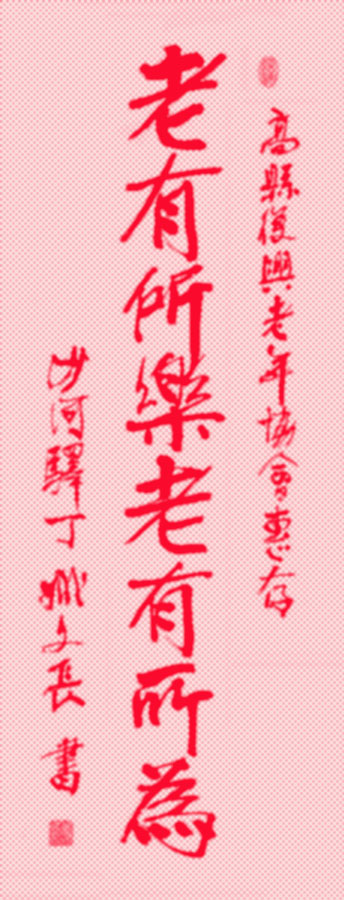 高縣復興老年協會惠存
老有所樂老有所為
沙河驛丁
文長書